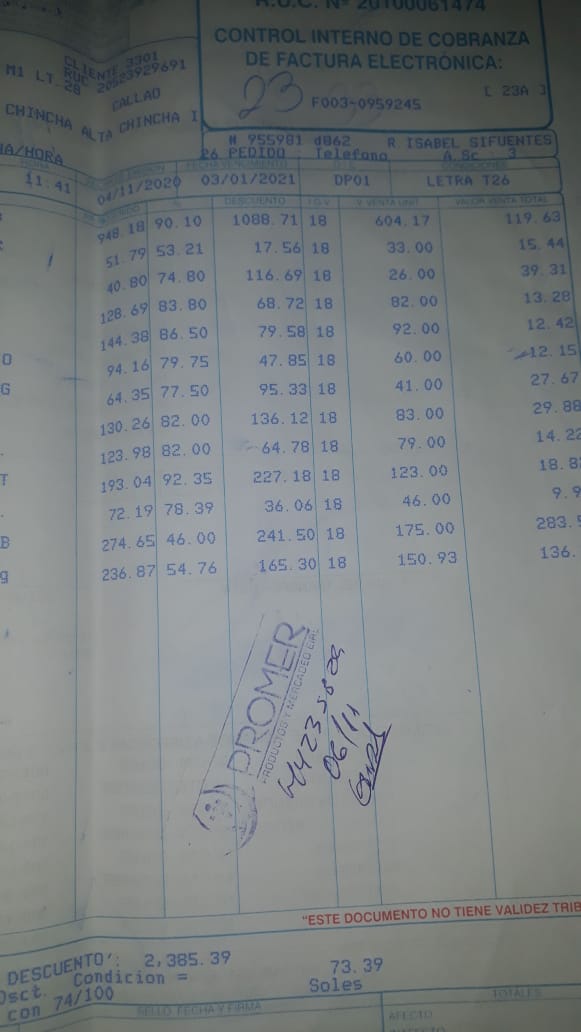 R.U.C. Nº 20100061474
CONTROL INTERNO DE COBRANZA
DE FACTURA ELECTRÓNICA:
23
F003-0959245
[ 23A ]
CLIENTE 3301
RUC 20523929691
M1 LT. 28
CALLAO
CHINCHA ALTA CHINCHA I
# 955981 d862 R ISABEL SIFUENTES
26 PEDIDO Telefono A.Sc 3
HA/HORA
11.41 04/11/2020 03/01/2021 DP01 LETRA T26
DESCUENTO I.G.V. V. VENTA UNIT. VALOR VENTA TOTAL
948.18 90.10 1088.71 18 604.17 119.63
51.79 53.21 17.56 18 33.00 15.44
40.80 74.80 116.69 18 26.00 39.31
128.69 83.80 68.72 18 82.00 13.28
144.38 86.50 79.58 18 92.00 12.42
O 94.16 79.75 47.85 18 60.00 12.15
G 64.35 77.50 95.33 18 41.00 27.67
130.26 82.00 136.12 18 83.00 29.88
123.98 82.00 64.78 18 79.00 14.22
T 193.04 92.35 227.18 18 123.00 18.8
72.19 78.39 36.06 18 46.00 9.9
B 274.65 46.00 241.50 18 175.00 283.
g 236.87 54.76 165.30 18 150.93 136.
PROMER
PRODUCTOS Y MERCADEO EIRL
06/11
"ESTE DOCUMENTO NO TIENE VALIDEZ TRIB
DESCUENTO': 2,385.39
Dsct. Condicion = 73.39
con 74/100 Soles
SELLO FECHA Y FIRMA
TOTALES
AFECTO